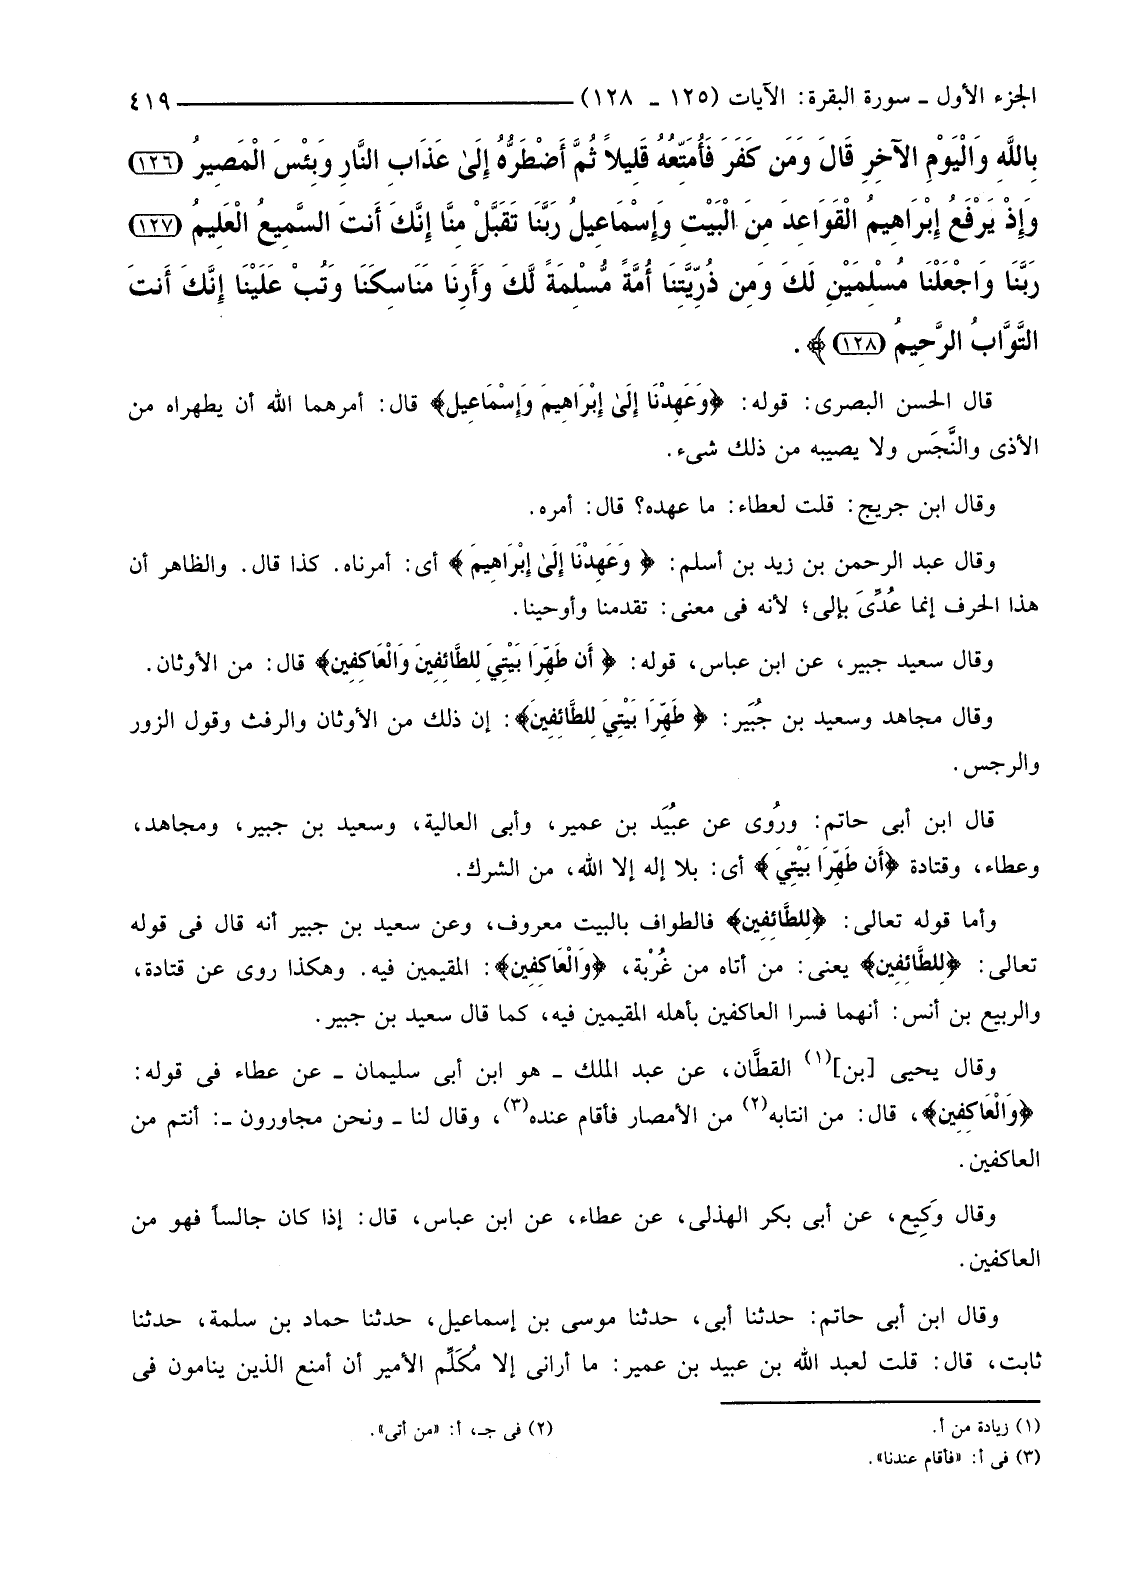 الجزء الأول ـ سورة البقرة: الآيات (١٢٥ ـ ١٢٨) ٤١٩
بِاللَّهِ وَالْيَوْمِ الآخِرِ قَالَ وَمَن كَفَرَ فَأُمَتِّعُهُ قَلِيلاً ثُمَّ أَضْطَرُّهُ إِلَىٰ عَذَابِ النَّارِ وَبِئْسَ الْمَصِيرُ (١٢٦)
وَإِذْ يَرْفَعُ إِبْرَاهِيمُ الْقَوَاعِدَ مِنَ الْبَيْتِ وَإِسْمَاعِيلُ رَبَّنَا تَقَبَّلْ مِنَّا إِنَّكَ أَنتَ السَّمِيعُ الْعَلِيمُ (١٢٧)
رَبَّنَا وَاجْعَلْنَا مُسْلِمَيْنِ لَكَ وَمِن ذُرِّيَّتِنَا أُمَّةً مُّسْلِمَةً لَّكَ وَأَرِنَا مَنَاسِكَنَا وَتُبْ عَلَيْنَا إِنَّكَ أَنتَ
التَّوَّابُ الرَّحِيمُ (١٢٨)﴾ .
قال الحسن البصرى: قوله: ﴿وَعَهِدْنَا إِلَىٰ إِبْرَاهِيمَ وَإِسْمَاعِيلَ﴾ قال: أمرهما الله أن يطهراه من
الأذى والنَّجَس ولا يصيبه من ذلك شىء.
وقال ابن جريج: قلت لعطاء: ما عهده؟ قال: أمره.
وقال عبد الرحمن بن زيد بن أسلم: ﴿ وَعَهِدْنَا إِلَىٰ إِبْرَاهِيمَ ﴾ أى: أمرناه. كذا قال. والظاهر أن
هذا الحرف إنما عُدِّىَ بإلى؛ لأنه فى معنى: تقدمنا وأوحينا.
وقال سعيد جبير، عن ابن عباس، قوله: ﴿ أَن طَهِّرَا بَيْتِيَ لِلطَّائِفِينَ وَالْعَاكِفِينَ﴾ قال: من الأوثان.
وقال مجاهد وسعيد بن جُبَير: ﴿ طَهِّرَا بَيْتِيَ لِلطَّائِفِينَ﴾: إن ذلك من الأوثان والرفث وقول الزور
والرجس.
قال ابن أبى حاتم: ورُوى عن عبُيَد بن عمير، وأبى العالية، وسعيد بن جبير، ومجاهد،
وعطاء، وقتادة ﴿أَن طَهِّرَا بَيْتِيَ ﴾ أى: بلا إله إلا الله، من الشرك.
وأما قوله تعالى: ﴿لِلطَّائِفِينَ﴾ فالطواف بالبيت معروف، وعن سعيد بن جبير أنه قال فى قوله
تعالى: ﴿لِلطَّائِفِينَ﴾ يعنى: من أتاه من غُرْبة، ﴿وَالْعَاكِفِينَ﴾: المقيمين فيه. وهكذا روى عن قتادة،
والربيع بن أنس: أنهما فسرا العاكفين بأهله المقيمين فيه، كما قال سعيد بن جبير.
وقال يحيى [بن](١) القطَّان، عن عبد الملك ـ هو ابن أبى سليمان ـ عن عطاء فى قوله:
﴿وَالْعَاكِفِينَ﴾، قال: من انتابه(٢) من الأمصار فأقام عنده(٣)، وقال لنا ـ ونحن مجاورون ـ: أنتم من
العاكفين.
وقال وَكِيع، عن أبى بكر الهذلى، عن عطاء، عن ابن عباس، قال: إذا كان جالساً فهو من
العاكفين.
وقال ابن أبى حاتم: حدثنا أبى، حدثنا موسى بن إسماعيل، حدثنا حماد بن سلمة، حدثنا
ثابت، قال: قلت لعبد الله بن عبيد بن عمير: ما أرانى إلا مُكَلِّم الأمير أن أمنع الذين ينامون فى
(١) زيادة من أ. (٢) فى جـ، أ: «من أتى».
(٣) فى أ: «فأقام عندنا».